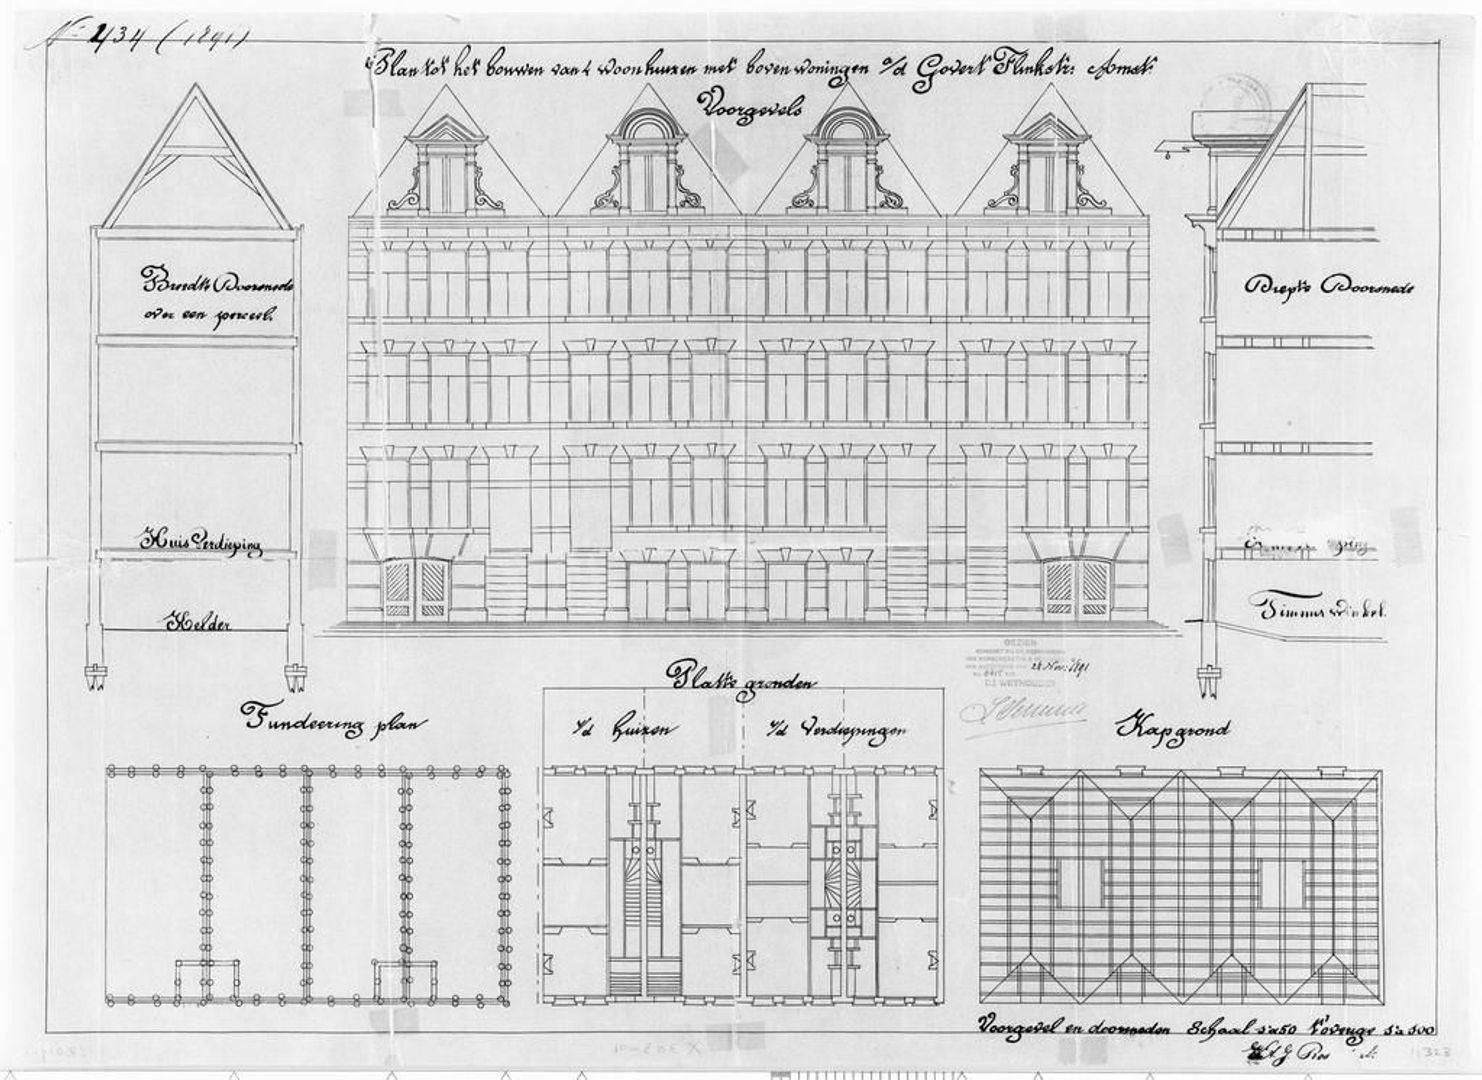 No 434 (1891)
Plan tot het bouwen van 4 woonhuizen met boven woningen o/d Govert Flinkstr: Amst:
Voorgevels
Breedte Doorsnede
over een perceel.
Diepte Doorsnede
Huis Verdieping
Kelder
Timmerwinkel
GEZIEN
28 Nov: 1891
DE WETHOUDER
Platte gronden
Fundeering plan
v/d huizen
v/d Verdiepingen
Kapgrond
Voorgevel en doorsneden Schaal 1 à 50 t'overige 1 à 100